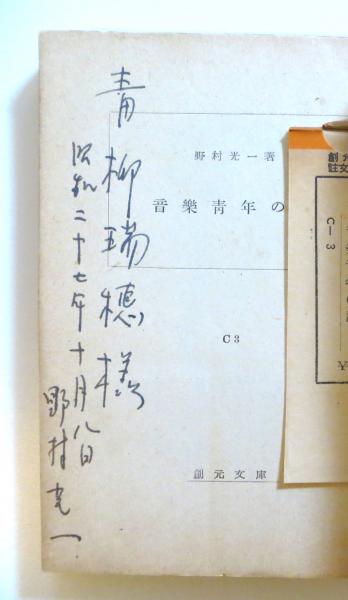 青柳瑞穂様
昭和二十七年十月八日
野村光一
野村光一著
音樂青年の
C3
創元文庫
創元
文
C—3